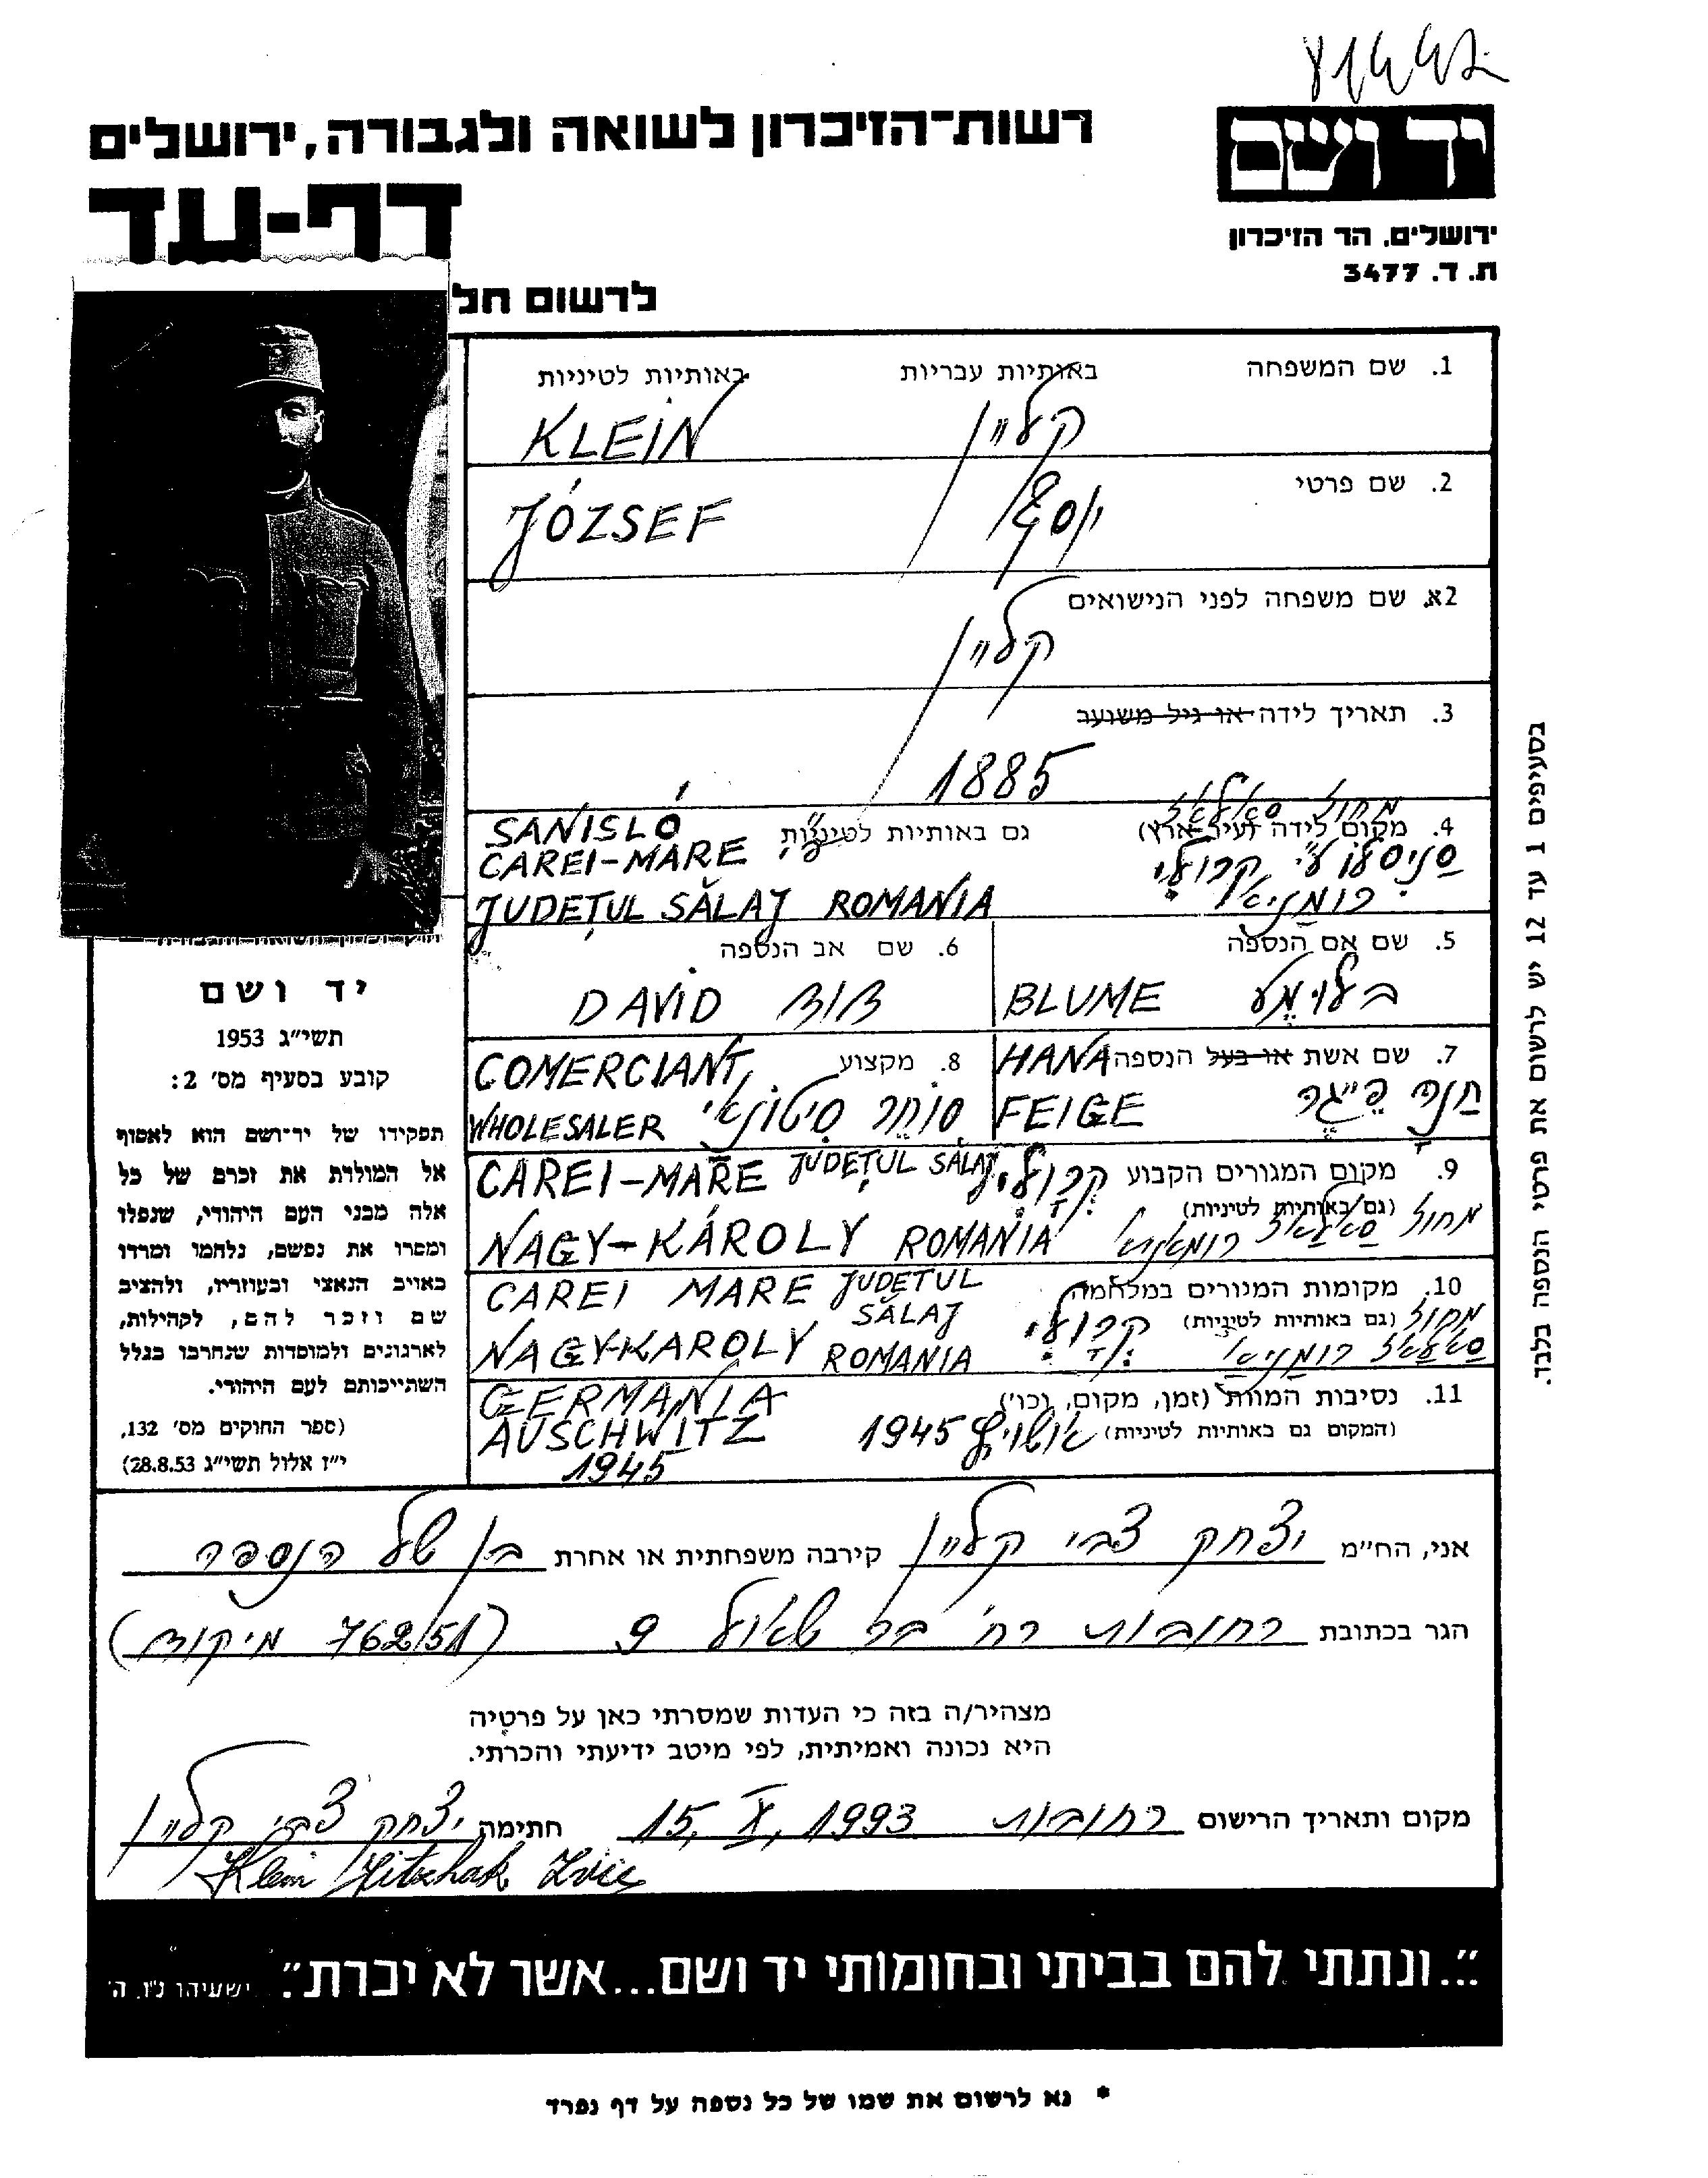 רשות־הזיכרון לשואה ולגבורה, ירושלים
יד ושם
דף-עד
ירושלים. הר הזיכרון
ת. ד. 3477
לרשום חל
1. שם המשפחה באותיות עבריות באותיות לטיניות
קליין KLEIN
2. שם פרטי
יוסף JÓZSEF
2א. שם משפחה לפני הנישואים
קליין
3. תאריך לידה או גיל משוער
1885
4. מקום לידה (עיר, ארץ) גם באותיות לטיניות
מחוז סאלאז
סניסלו ע"י קרולי
רומניא
SANISLÓ
CAREI-MARE
JUDEȚUL SĂLAJ ROMANIA
5. שם אם הנספה
בלומע BLUME
6. שם אב הנספה
דוד DAVID
7. שם אשת או בעל הנספה HANA
חנה פייגה FEIGE
8. מקצוע COMERCIANT,
סוחר סיטונאי WHOLESALER
9. מקום המגורים הקבוע
(גם באותיות לטיניות)
קרולי מחוז סאלאז רומאניא
CAREI-MARE JUDEȚUL SĂLAJ
NAGY-KÁROLY ROMANIA
10. מקומות המגורים במלחמה
(גם באותיות לטיניות)
קרולי מחוז סאלאז רומניא
CAREI MARE JUDEȚUL
SĂLAJ
NAGY-KAROLY ROMANIA
11. נסיבות המוות (זמן, מקום, וכו')
(המקום גם באותיות לטיניות)
אושויץ 1945
GERMANIA
AUSCHWITZ
1945
יד ושם
תשי"ג 1953
קובע בסעיף מס' 2:
תפקידו של יד־ושם הוא לאסוף
אל המולדת את זכרם של כל
אלה מבני העם היהודי, שנפלו
ומסרו את נפשם, נלחמו ומרדו
באויב הנאצי ובעוזריו, ולהציב
שם וזכר להם, לקהילות,
לארגונים ולמוסדות שנחרבו בגלל
השתייכותם לעם היהודי.
(ספר החוקים מס' 132,
י"ז אלול תשי"ג 28.8.53)
בסעיפים 1 עד 12 יש לרשום את פרטי הנספה בלבד.
אני, הח"מ יצחק צבי קליין קירבה משפחתית או אחרת בן של הנספה
הגר בכתובת רחובות רח' בר שאול 9 (762/51 מיקוד)
מצהיר/ה בזה כי העדות שמסרתי כאן על פרטיה
היא נכונה ואמיתית, לפי מיטב ידיעתי והכרתי.
מקום ותאריך הרישום רחובות 15, X, 1993 חתימה יצחק צבי קליין
Klein Yitzhak Zvi
"...ונתתי להם בביתי ובחומותי יד ושם...אשר לא יכרת". ישעיהו נ"ו. ה'
* נא לרשום את שמו של כל נספה על דף נפרד